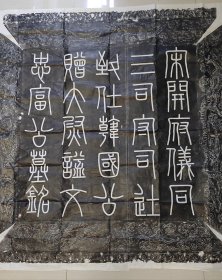 宋開府儀同
三司守司徒
致仕韓國公
贈大尉謚文
忠富公墓銘